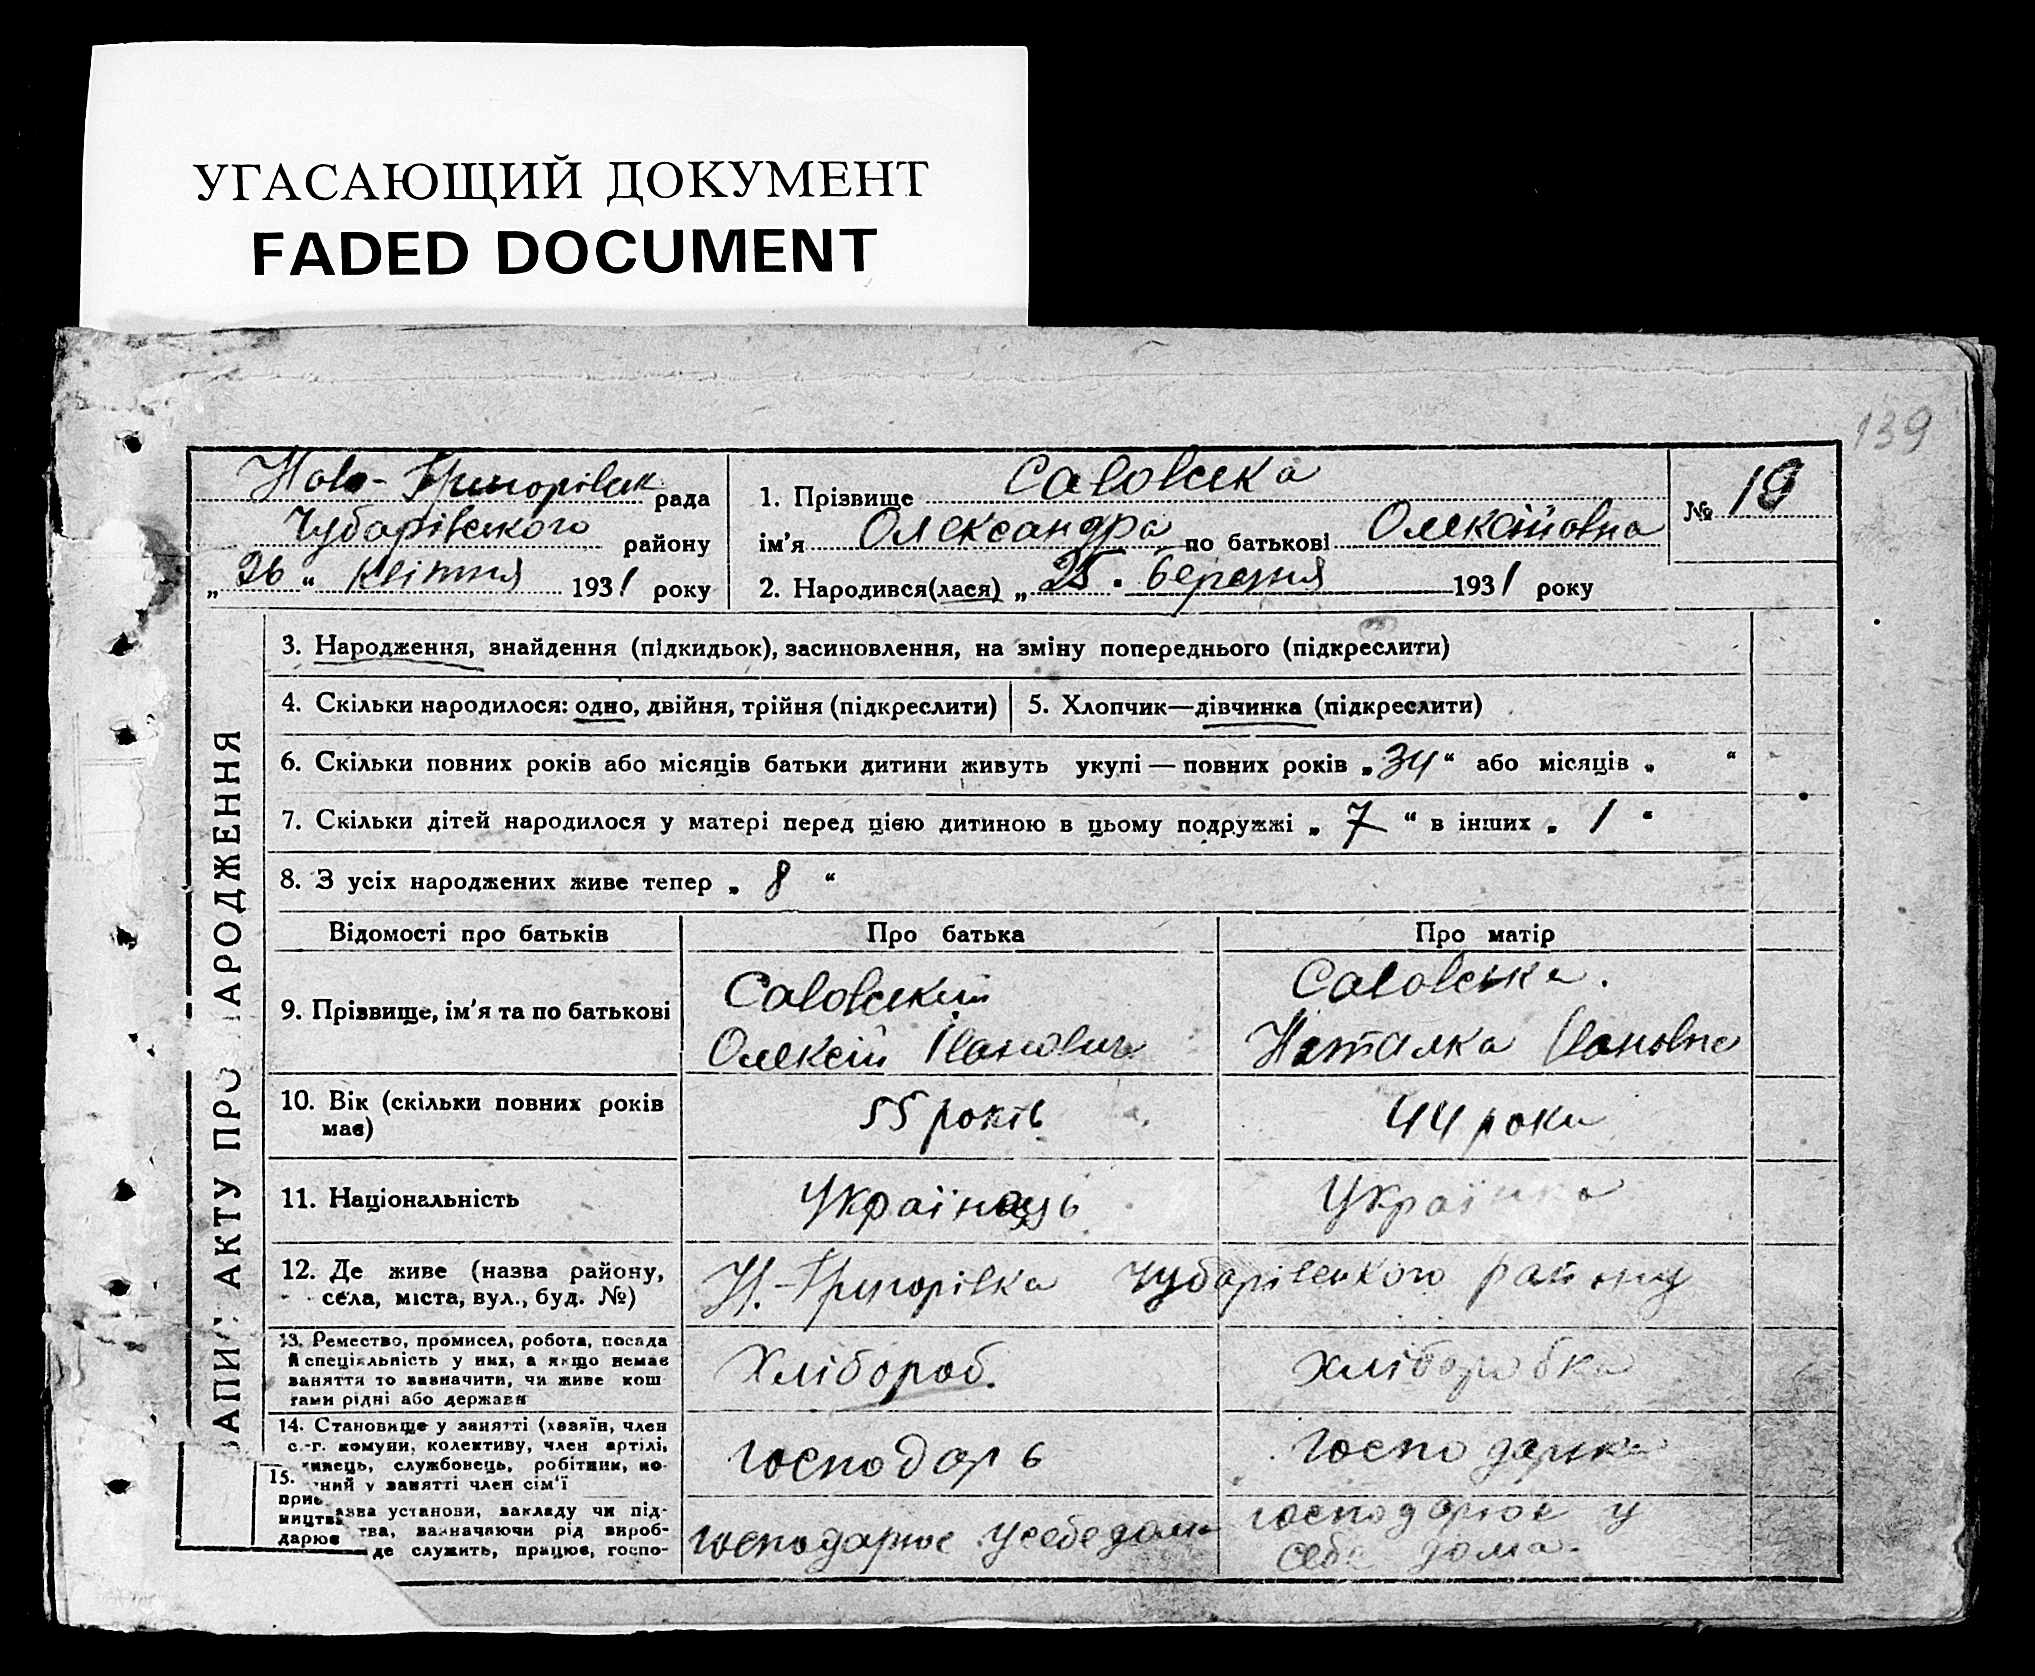 УГАСАЮЩИЙ ДОКУМЕНТ
FADED DOCUMENT
139
Ново-Григорівск рада
Чубарівського району
„26“ квітня 1931 року
1. Прізвище Саловська
ім'я Олександра по батькові Олексійовна
2. Народився(лася) „25. березня 1931 року
№ 19
ЗАПИС АКТУ ПРО НАРОДЖЕННЯ
3. Народження, знайдення (підкидьок), засиновлення, на зміну попереднього (підкреслити)
4. Скільки народилося: одно, двійня, трійня (підкреслити)
5. Хлопчик—дівчинка (підкреслити)
6. Скільки повних років або місяців батьки дитини живуть укупі — повних років „34“ або місяців „ “
7. Скільки дітей народилося у матері перед цією дитиною в цьому подружжі „7“ в інших „1“
8. З усіх народжених живе тепер „8“
Відомості про батьків
Про батька
Про матір
9. Прізвище, ім'я та по батькові
Саловський
Олексій Іванович
Саловська.
Наталка Івановна
10. Вік (скільки повних років
має)
55 років
44 роки
11. Національність
Українець
Українка
12. Де живе (назва району,
села, міста, вул., буд. №)
Н.-Григорівка Чубарівського району
13. Ремество, промисел, робота, посада
й спеціяльність у них, а якщо немає
заняття то зазначити, чи живе кош
тами рідні або держави
Хлібороб.
хліборобка
14. Становище у занятті (хазяїн, член
с.-г. комуни, колективу, член артілі,
службовець, робітник, по-
у занятті член сім'ї
господарь
господарка
15.
установи, закладу чи під-
зазначаючи рід вироб-
ництва
дарює
де служить, працює, госпо-
господарює у себе дома
господарює у
себе дома.